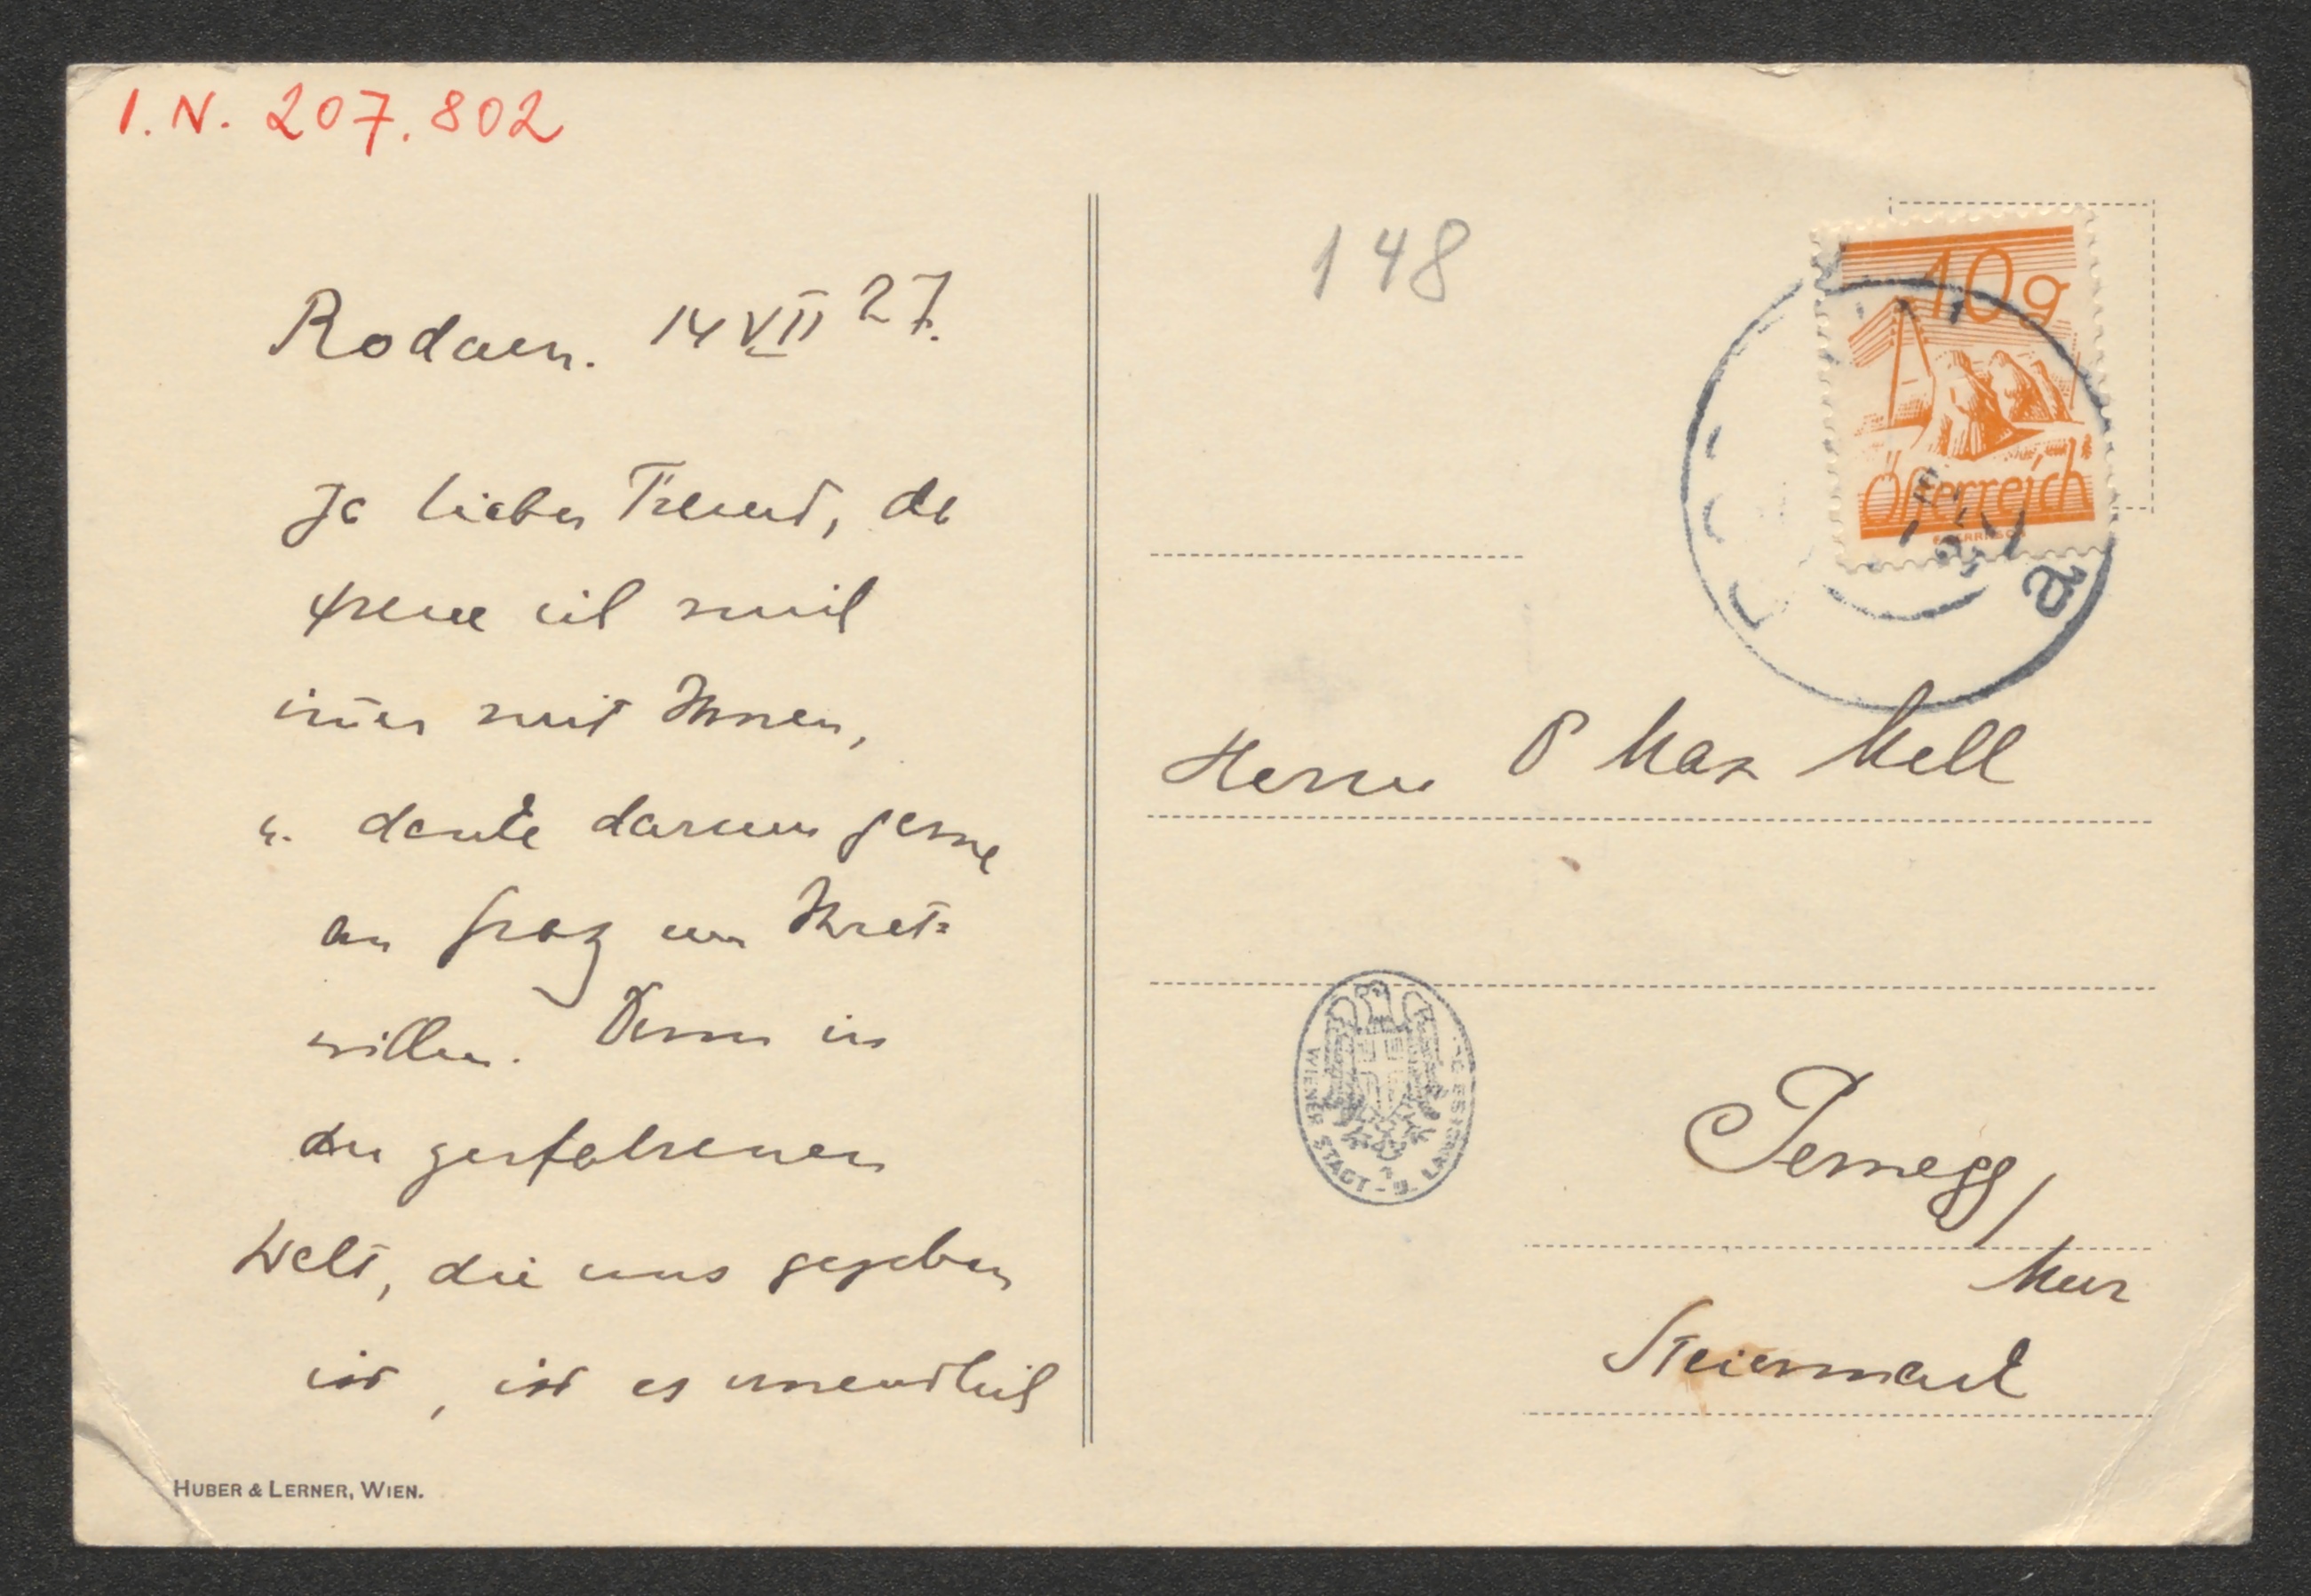 I. N. 207.802
Rodaun. 14 VII 27.
Ja lieber Freund, da
freue ich mich
im̄er mit Ihnen,
u. denke darum gerne
an Graz um Ihret=
willen. Denn in
der zerfahrenen
Welt, die uns gegeben
ist, ist es unendlich
HUBER & LERNER, WIEN.
148
10g
Österreich
a
Herrn D Max Mell
WIENER STADT - U. LANDES
Pernegg/
Mur
Steiermark